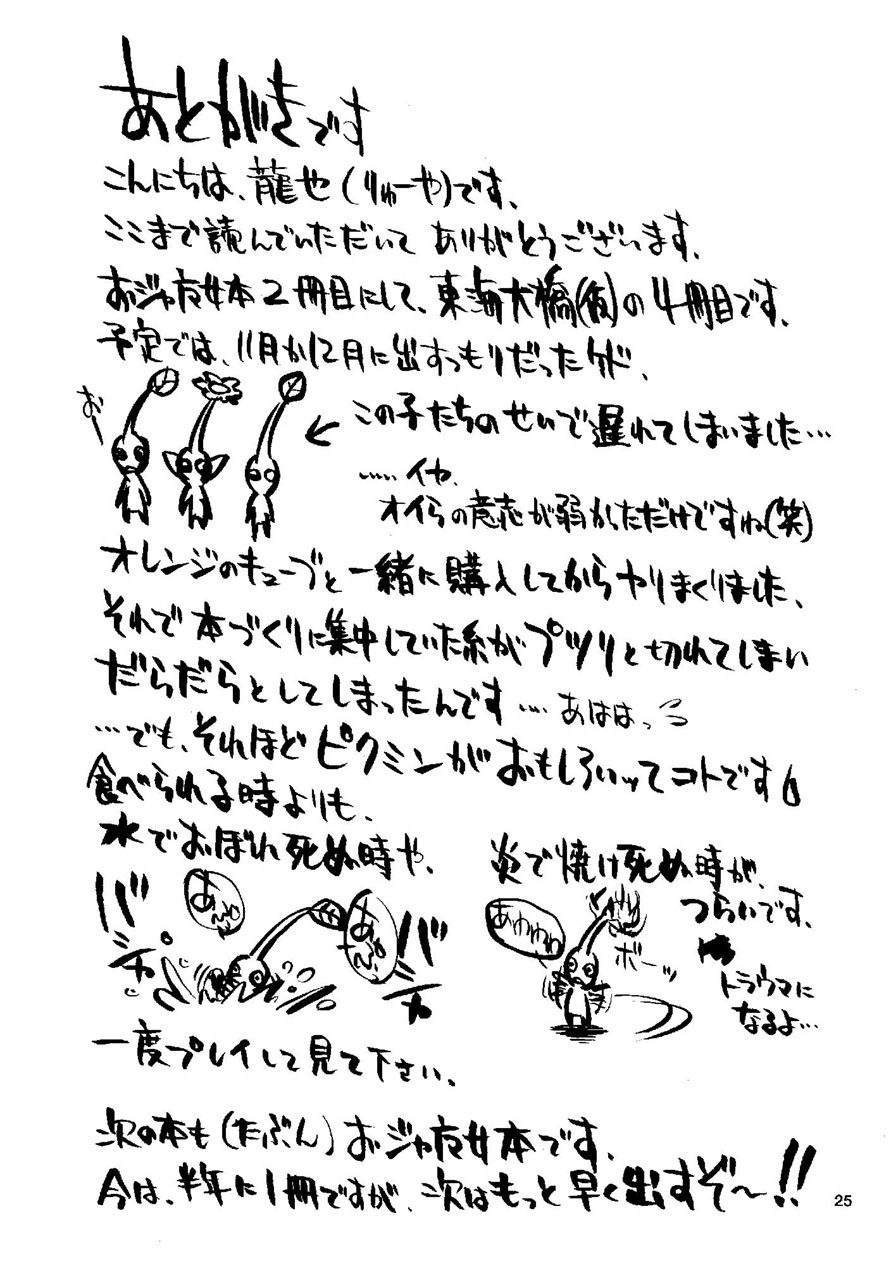 あとがきです
こんにちは、龍也(りゅーや)です、
ここまで読んでいただいて ありがとうございます、
おジャ魔女本2冊目にして、東海大橋(仮)の4冊目です、
予定では、11月か12月に出すつもりだったケド、
おー
この子たちのせいで遅れてしまいました…
……イヤ、
オイらの意志が弱かっただけですね(笑)
オレンジのキューブと一緒に購入してからヤリまくりました、
それで本づくりに集中していた糸がプツリと切れてしまい
だらだらとしてしまったんです…. あははっ
…でも、それほどピクミンがおもしろいッてコトです
食べられる時よりも、
水でおぼれ死ぬ時や、
炎で焼け死ぬ時が、
つらいです、
バシャ
あ
あ
バシャ
あわわわ
ボーッ
トラウマに
なるよ…
一度プレイして見て下さい、
次の本も(たぶん)おジャ魔女本です、
今は、半年に1冊ですが、次はもっと早く出すぞ〜!!
25